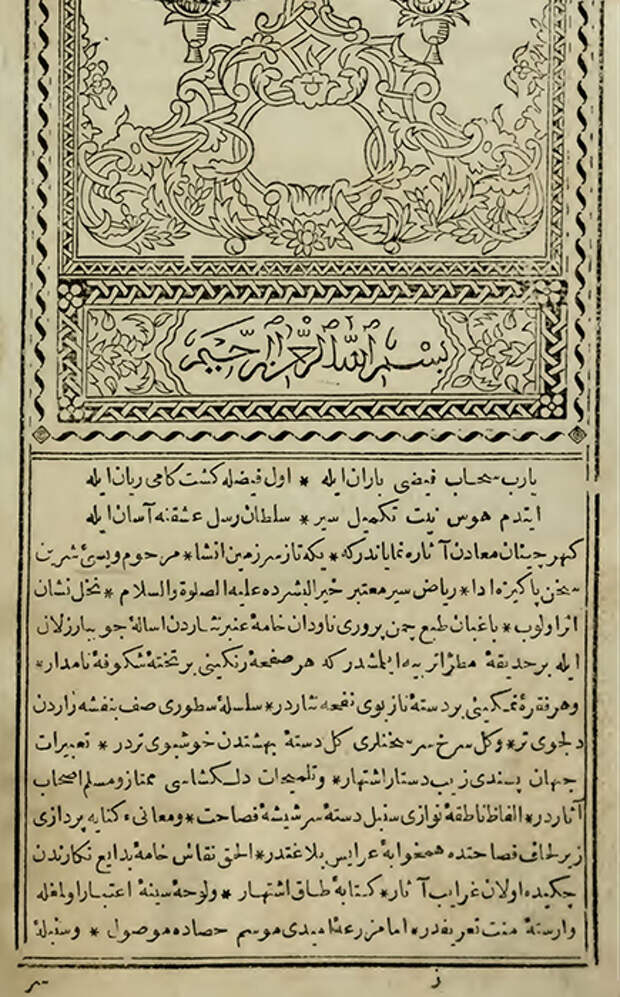 بسم الله الرحمن الرحيم
يارب سحاب فيضى باران ايله * اول فيضله كشت كامى ريان ايله
ايتدم هوس نيت تكميل سير * سلطان رسل عشقنه آسان ايله
كهر چينان معادن آثاره نماياندركه * يكه تاز سرزمين انشا * مرحوم ويسئ شرين
سخن پاكيزه ادا * رياض سير معتبر خير البشرده عليه الصلوة والسلام * نخل نشان
اثر اولوب * باغبان طبع چمن پرورى ناودان خامۀ عنبر نثاردن اسالۀ جويبار زلال
ايله بر حديقۀ مطرا تربيه ايلمشدركه هر صفحۀ رنكينى بر تختۀ شكوفۀ نامدار *
وهر فقرۀ نمكينى بر دستۀ نازبوى نفحه نثاردر * سلسلۀ سطورى صف بنفشه زاردن
دلجوى تر * وكل سرخ سر سخنلرى كل دستۀ بهشتدن خوشبوى تردر * تعبيرات
جهان پسندى زيب دستار اشتهار * وتلميحات دلكشاسى ممتاز ومسلم اصحاب
آثاردر * الفاظ ناطقه نوازى سنبل دستۀ سر شيشۀ فصاحت * ومعانىء كنايه پردازى
زير لحاف فصاحتده همخوابۀ عرايس بلاغتدر * الحق نقاش خامۀ بدايع نكارندن
چكيده اولان غرايب آثار * كتابۀ طاق اشتهار * ولوحۀ سينۀ اعتبار اولمغله
وارستۀ منت تعريفدر * اما مزرعۀ اميدى موسم حصاده موصول * وسنبلۀ